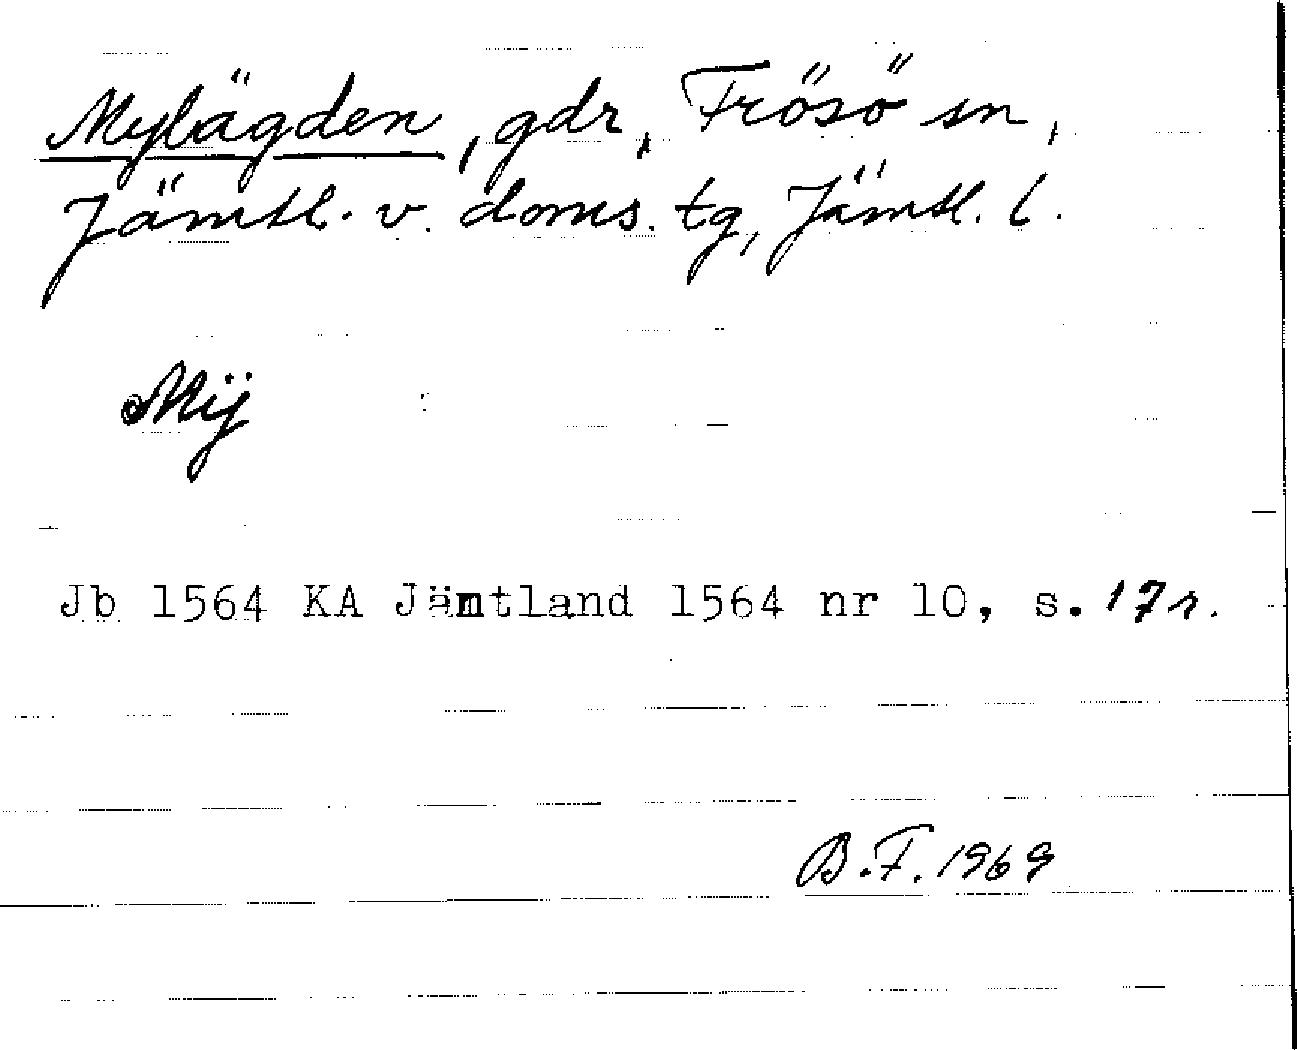 Mylägden, gdr, Frösö sn,
Jämtl. v. doms. tg, Jämtl. l.
Mÿ
Jb 1564 KA Jämtland 1564 nr 10, s. 17r.
B.F. 1969